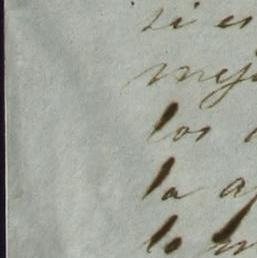 si es
mej
los
la a
lo m